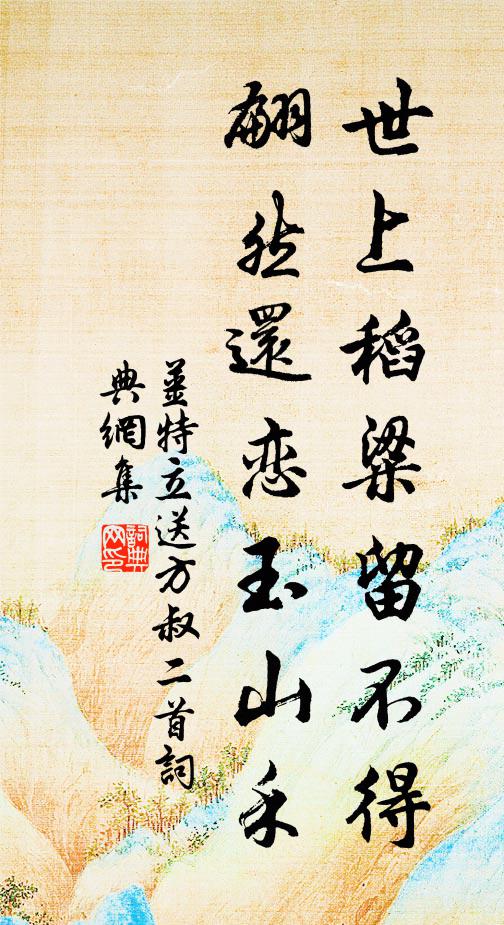 世上稻梁留不得
翩然還恋玉山禾
姜特立送方叔二首詞
典網集
詞典